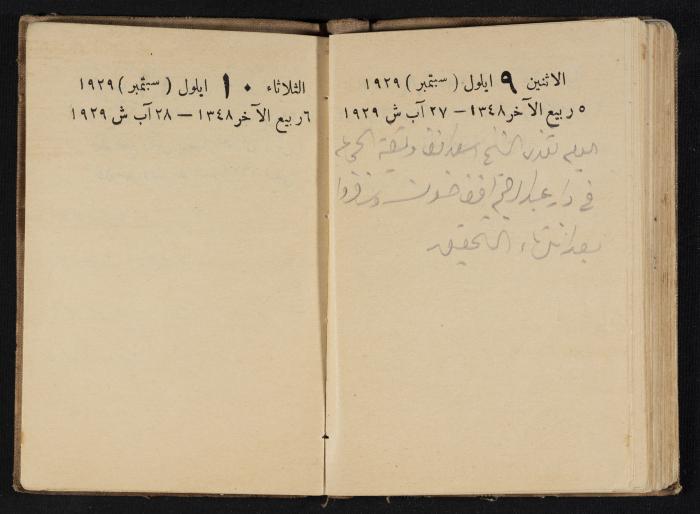 الاثنين ٩ ايلول (سبتمبر) ١٩٢٩
٥ ربيع الآخر ١٣٤٨ — ٢٧ آب ش ١٩٢٩
اليوم تغدى الشيخ اسعد وبقية
في دار عبد الرحيم افندي
بعد انتهاء التحقيق
الثلاثاء ١٠ ايلول (سبتمبر) ١٩٢٩
٦ ربيع الآخر ١٣٤٨ — ٢٨ آب ش ١٩٢٩